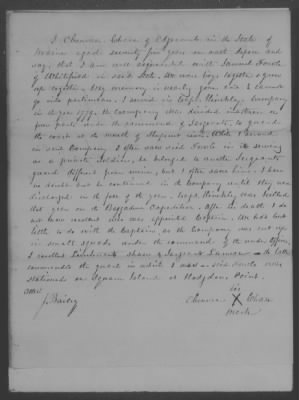 I, Chase of Edgecomb in the State of
Maine aged seventy five years on oath depose and
say, that I am well acquainted with Samuel
of Whitefield in said State. We were boys together & grew
up together. My memory is nearly gone and I cannot
go into particulars. I served in Capt. Hinkley's Company
in the year 1779. The Company was divided into three or
four parts, under the command of Sergeants, to guard
the coast at the mouth of Sheepscot river. While I served
in said Company I often saw said in the service
as a private soldier, he belonged to another Sergeants
guard different from mine, but I often saw him. I have
no doubt but he continued in the Company until they were
discharged in the fall of the year. Capt. Hinkley was killed
that year in the Expedition. After his death I do
not have recollect who was appointed Captain. We had but
little to do with the Captains, as the Company was cut up
in small squads under the command of the under officers.
I recollect Lieutenant and Sergeant the latter
commanded the guard in which I was
stationed on Squam Island at Hodgdons Point.
Attest
J. Bailey
his
X Chase
mark